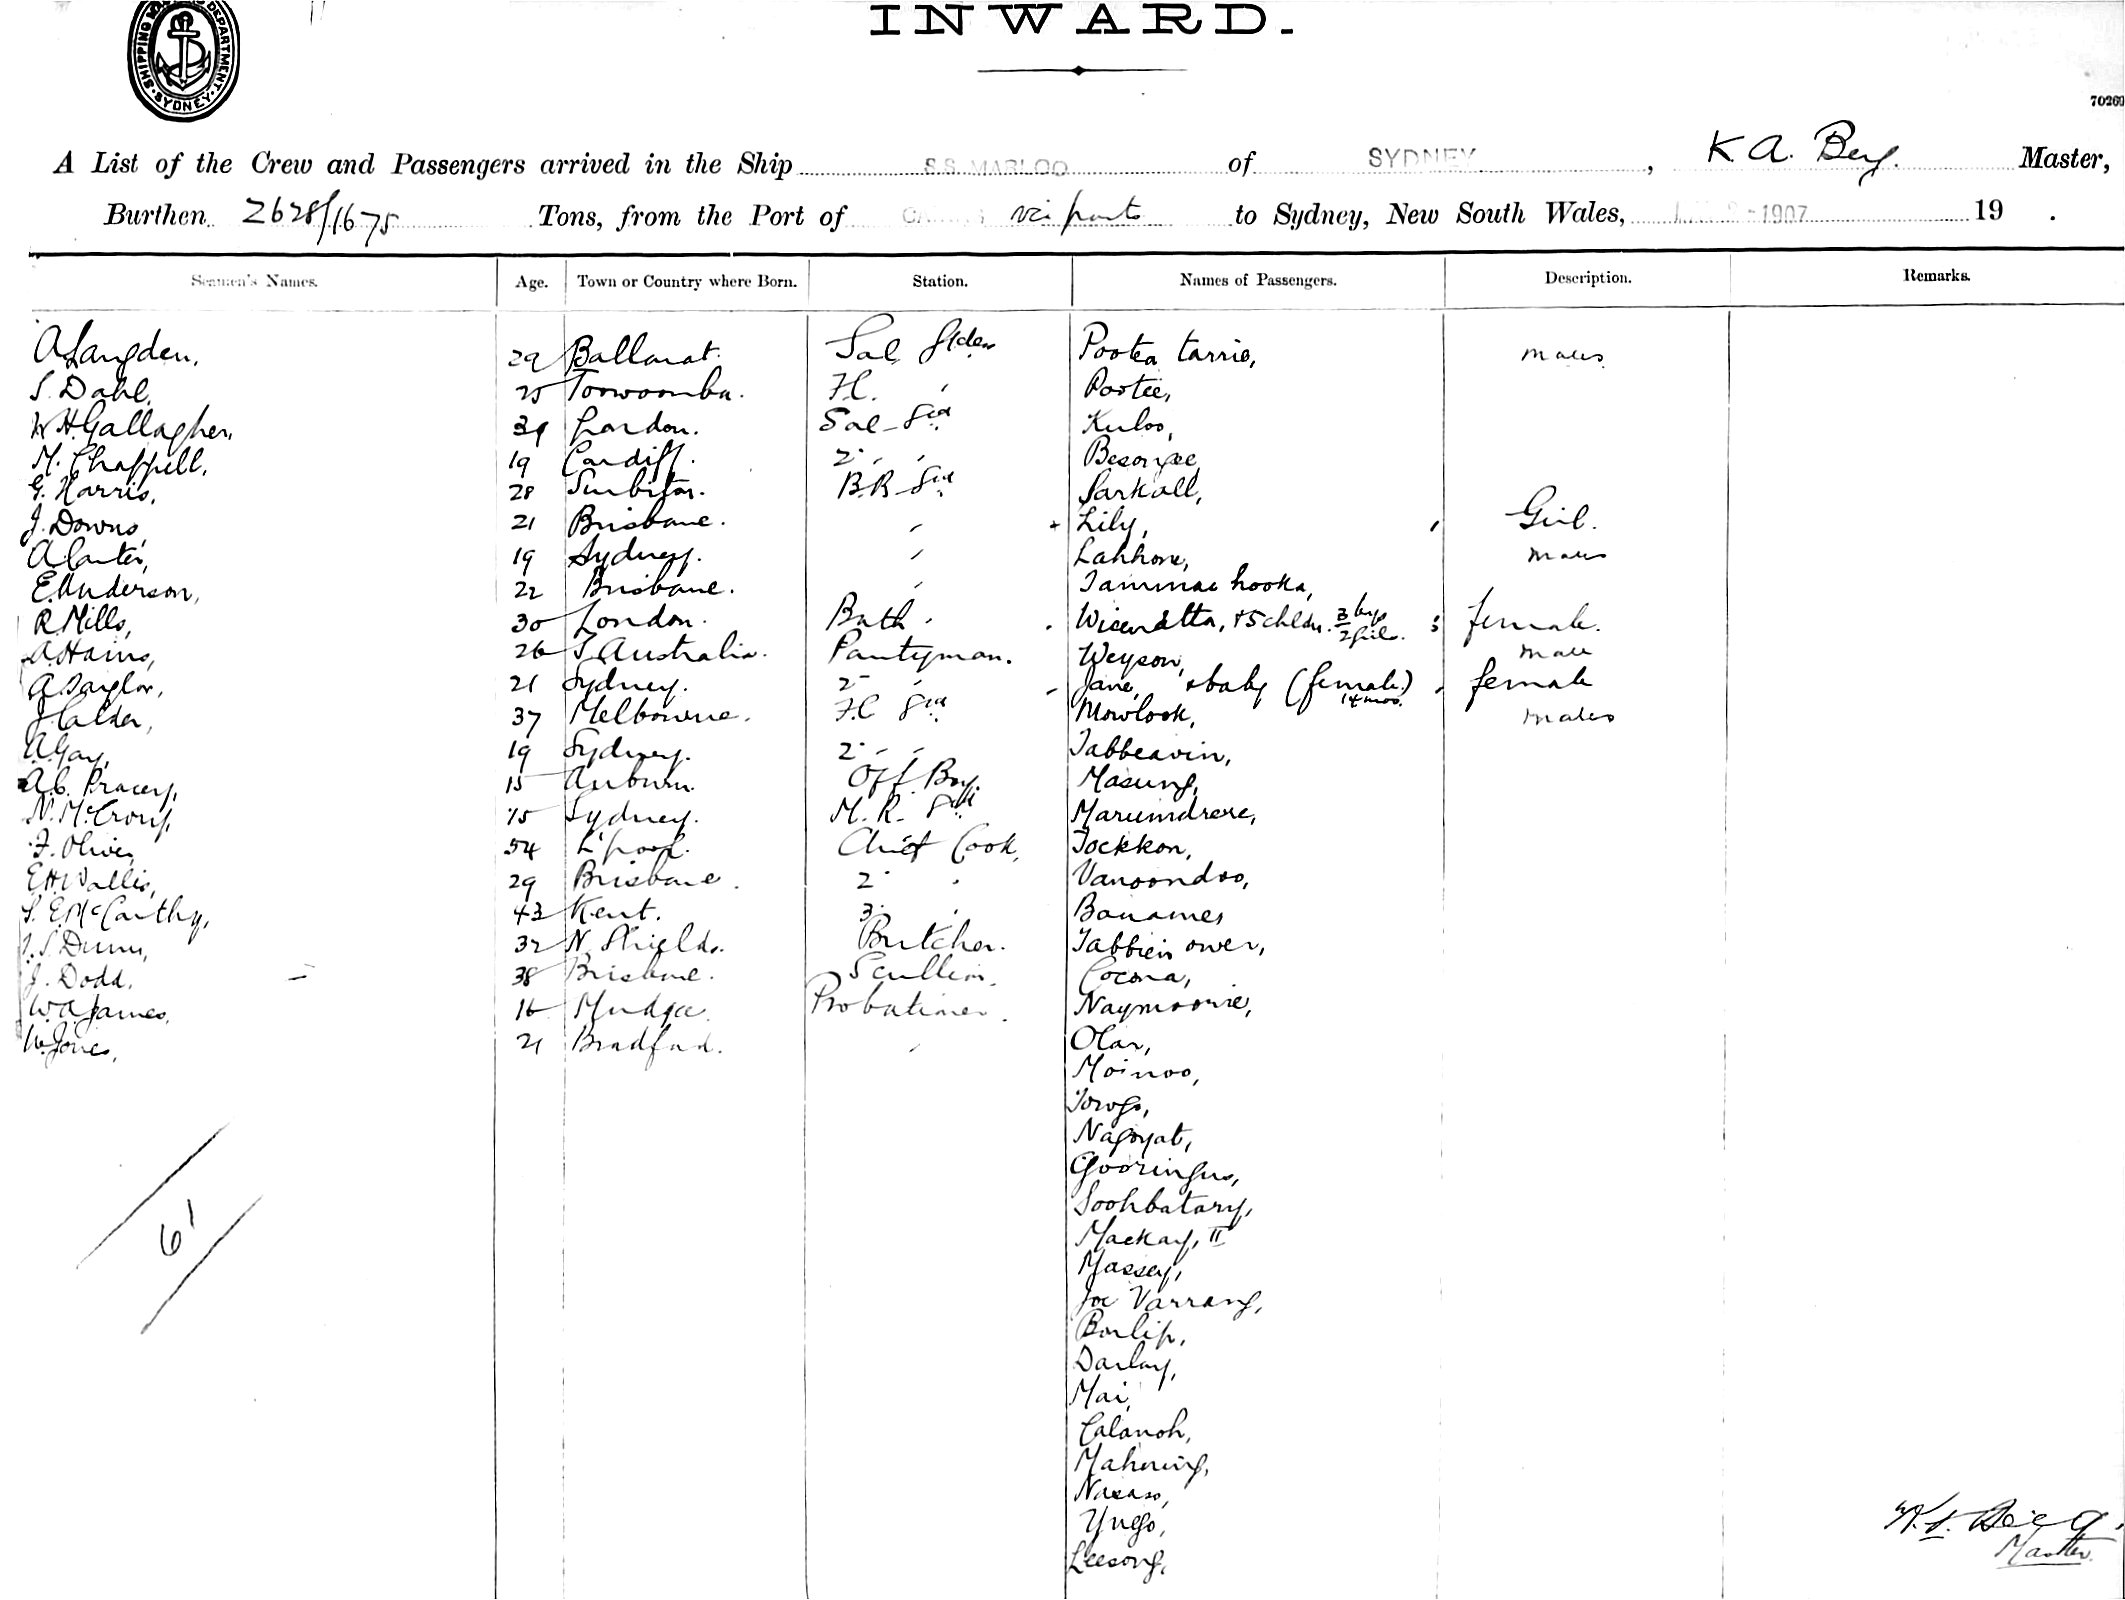 SHIPPING DEPARTMENT SYDNEY
INWARD.
70269
A List of the Crew and Passengers arrived in the Ship S.S. MARLOO of SYDNEY, K A. Berg. Master,
Burthen 2628/1675 Tons, from the Port of CAIRNS via ports to Sydney, New South Wales, 1907 19 .
Seamen's Names. Age. Town or Country where Born. Station. Names of Passengers. Description. Remarks.
A Langden, 29 Ballarat. Sal Pootea tarrie, males
S. Dahl, 25 Toowoomba. F.C. " Pootee,
W H Gallagher, 39 London. Sal Std Kuloo,
M. Chappell, 19 Cardiff. 2 " " Besorgee
G. Harris, 28 Surbiton. B.R. Std Sarkall,
J. Downs, 21 Brisbane. " Lily, Girl.
A. Carter, 19 Sydney. " Lahhone, males
E. Anderson, 22 Brisbane. " Tammac hooka,
R. Mills, 30 London. Bath " + 5 chldn. 3 boys 2 girls. female.
A. Hains, 26 S. Australia. Pantryman. Weyson, male
A. Taylor, 21 Sydney. 2 " Jane, + baby (female.) 14 mos. female
J. Calder, 37 Melbourne. F.C Std Mowlook, males
A. Gay, 19 Sydney. 2 " " Tabbeavin,
A.C. Pracey, 15 Auburn. Off. Boy. Masung,
N. McCrory, 15 Sydney. M. R. Std Marumdrere,
F. Oliver, 54 L'pool. Chief Cook, Tockkon,
E.H. Wallis, 29 Brisbane. 2 " Vanoondoo,
S. E. McCarthy, 43 Kent. 3 " Banames
J. S. Dunn, 32 N. Shields. Butcher. Tabbien ower,
J. Dodd. 38 Brisbane. Scullion. Cocona,
W.A. James, 16 Mudgee. Probationer. Naymoorie,
W. Jones, 21 Bradford. " Olar,
Moinoo,
Torogo,
Nagoyat,
Gooringus,
Soohbatary,
Mackay, II
Massey,
Joe Varrang,
Borlip,
Darlay,
Mai,
Calanoh,
Mahering,
Nasaso,
Yuego,
Leesong,
61
Master.